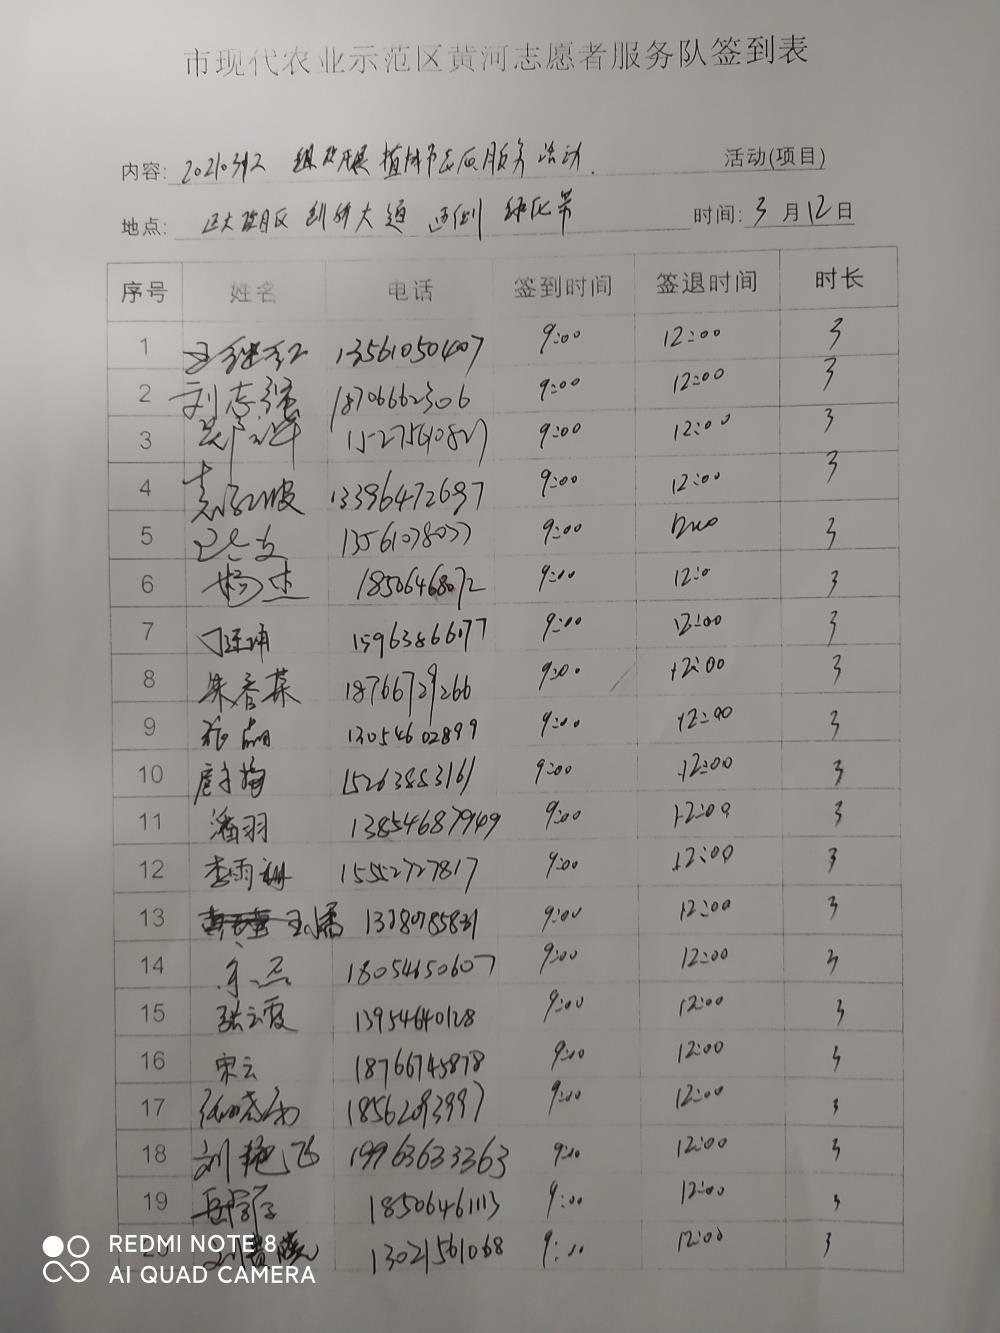 市现代农业示范区黄河志愿者服务队签到表
内容: 20210312 植树节志愿服务活动. 活动(项目)
地点: 创新大道 西侧 绿化带 时间: 3月12日
序号 姓名 电话 签到时间 签退时间 时长
1 13561050407 9:00 12:00 3
2 刘志强 18706662306 9:00 12:00 3
3 9:00 12:00 3
4 13396472697 9:00 12:00 3
5 9:00 3
6 杨杰 18506468072 9:00 12:0 3
7 15963866077 9:00 12:00 3
8 朱春荣 18766729266 9:00 12:00 3
9 13054602899 9:00 12:00 3
10 15263883161 9:00 12:00 3
11 潘羽 13854687949 9:00 12:00 3
12 李雨珊 15552727817 9:00 12:00 3
13 9:00 12:00 3
14 18054650607 9:00 12:00 3
15 张云霞 13954640128 9:00 12:00 3
16 宋云 18766745878 9:00 12:00 3
17 18562093997 9:00 12:00 3
18 刘艳飞 19963633363 9:00 12:00 3
19 18506461113 9:00 12:00 3
20 13021561068 9:00 12:00 3
REDMI NOTE 8
AI QUAD CAMERA